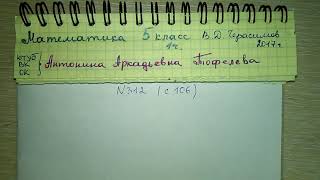 Математика 5 класс В.Д. Герасимов
1ч. 2017г
ЮТУБ
ВК
ОК
Антонина Аркадьевна Тофелева
N312 (с 106)